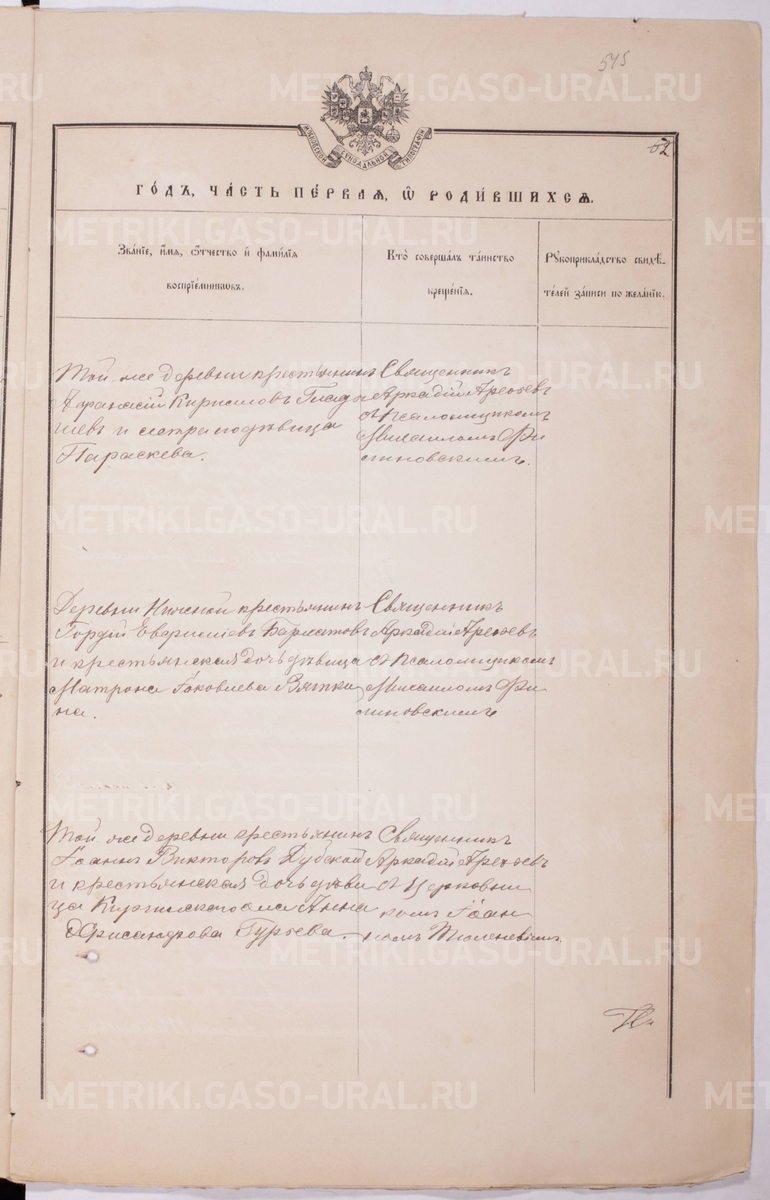 545
МОСКОВСКОЙ СѴНОДАЛЬНОЙ ТИПОГРАФІИ
52
ГО́ДЪ, ЧА́СТЬ ПЕ́РВАѦ, Ѡ҆ РОДИ́ВШИХСѦ.
Зва́нїе, и҆́мѧ, ѻ҆́тчество и҆ фами́лїѧ
воспрїе́мниковъ.
Кто̀ соверша́лъ та́инство
креще́нїѧ.
Рꙋкоприкла́дство свидѣ́-
телей за́писи по жела́нїю.
Той же деревни крестьянинъ
Афанасій Кириловъ Глады
шевъ и сестра его дѣвица
Параскева.
Священникъ
Аркадій Арефьевъ
съ Псаломщикомъ
Михаиломъ Фи
линовскимъ.
Деревни Нижней крестьянинъ
Гордій Еварестіевъ
и крестьянская дочь дѣвица
Матрона Іаковлева Вятки
на.
Священникъ
Аркадій Арефьевъ
съ Псаломщикомъ
Михаиломъ Фи
линовскимъ
Той же деревни крестьянинъ
Іоаннъ Викторовъ Дубской
и крестьянская дочь дѣви
ца Киргишанского села Анна
Гурьева.
Священникъ
Аркадій Арефьевъ
съ Церковни
комъ Іоан
номъ Тюленевымъ.
METRIKI.GASO-URAL.RU